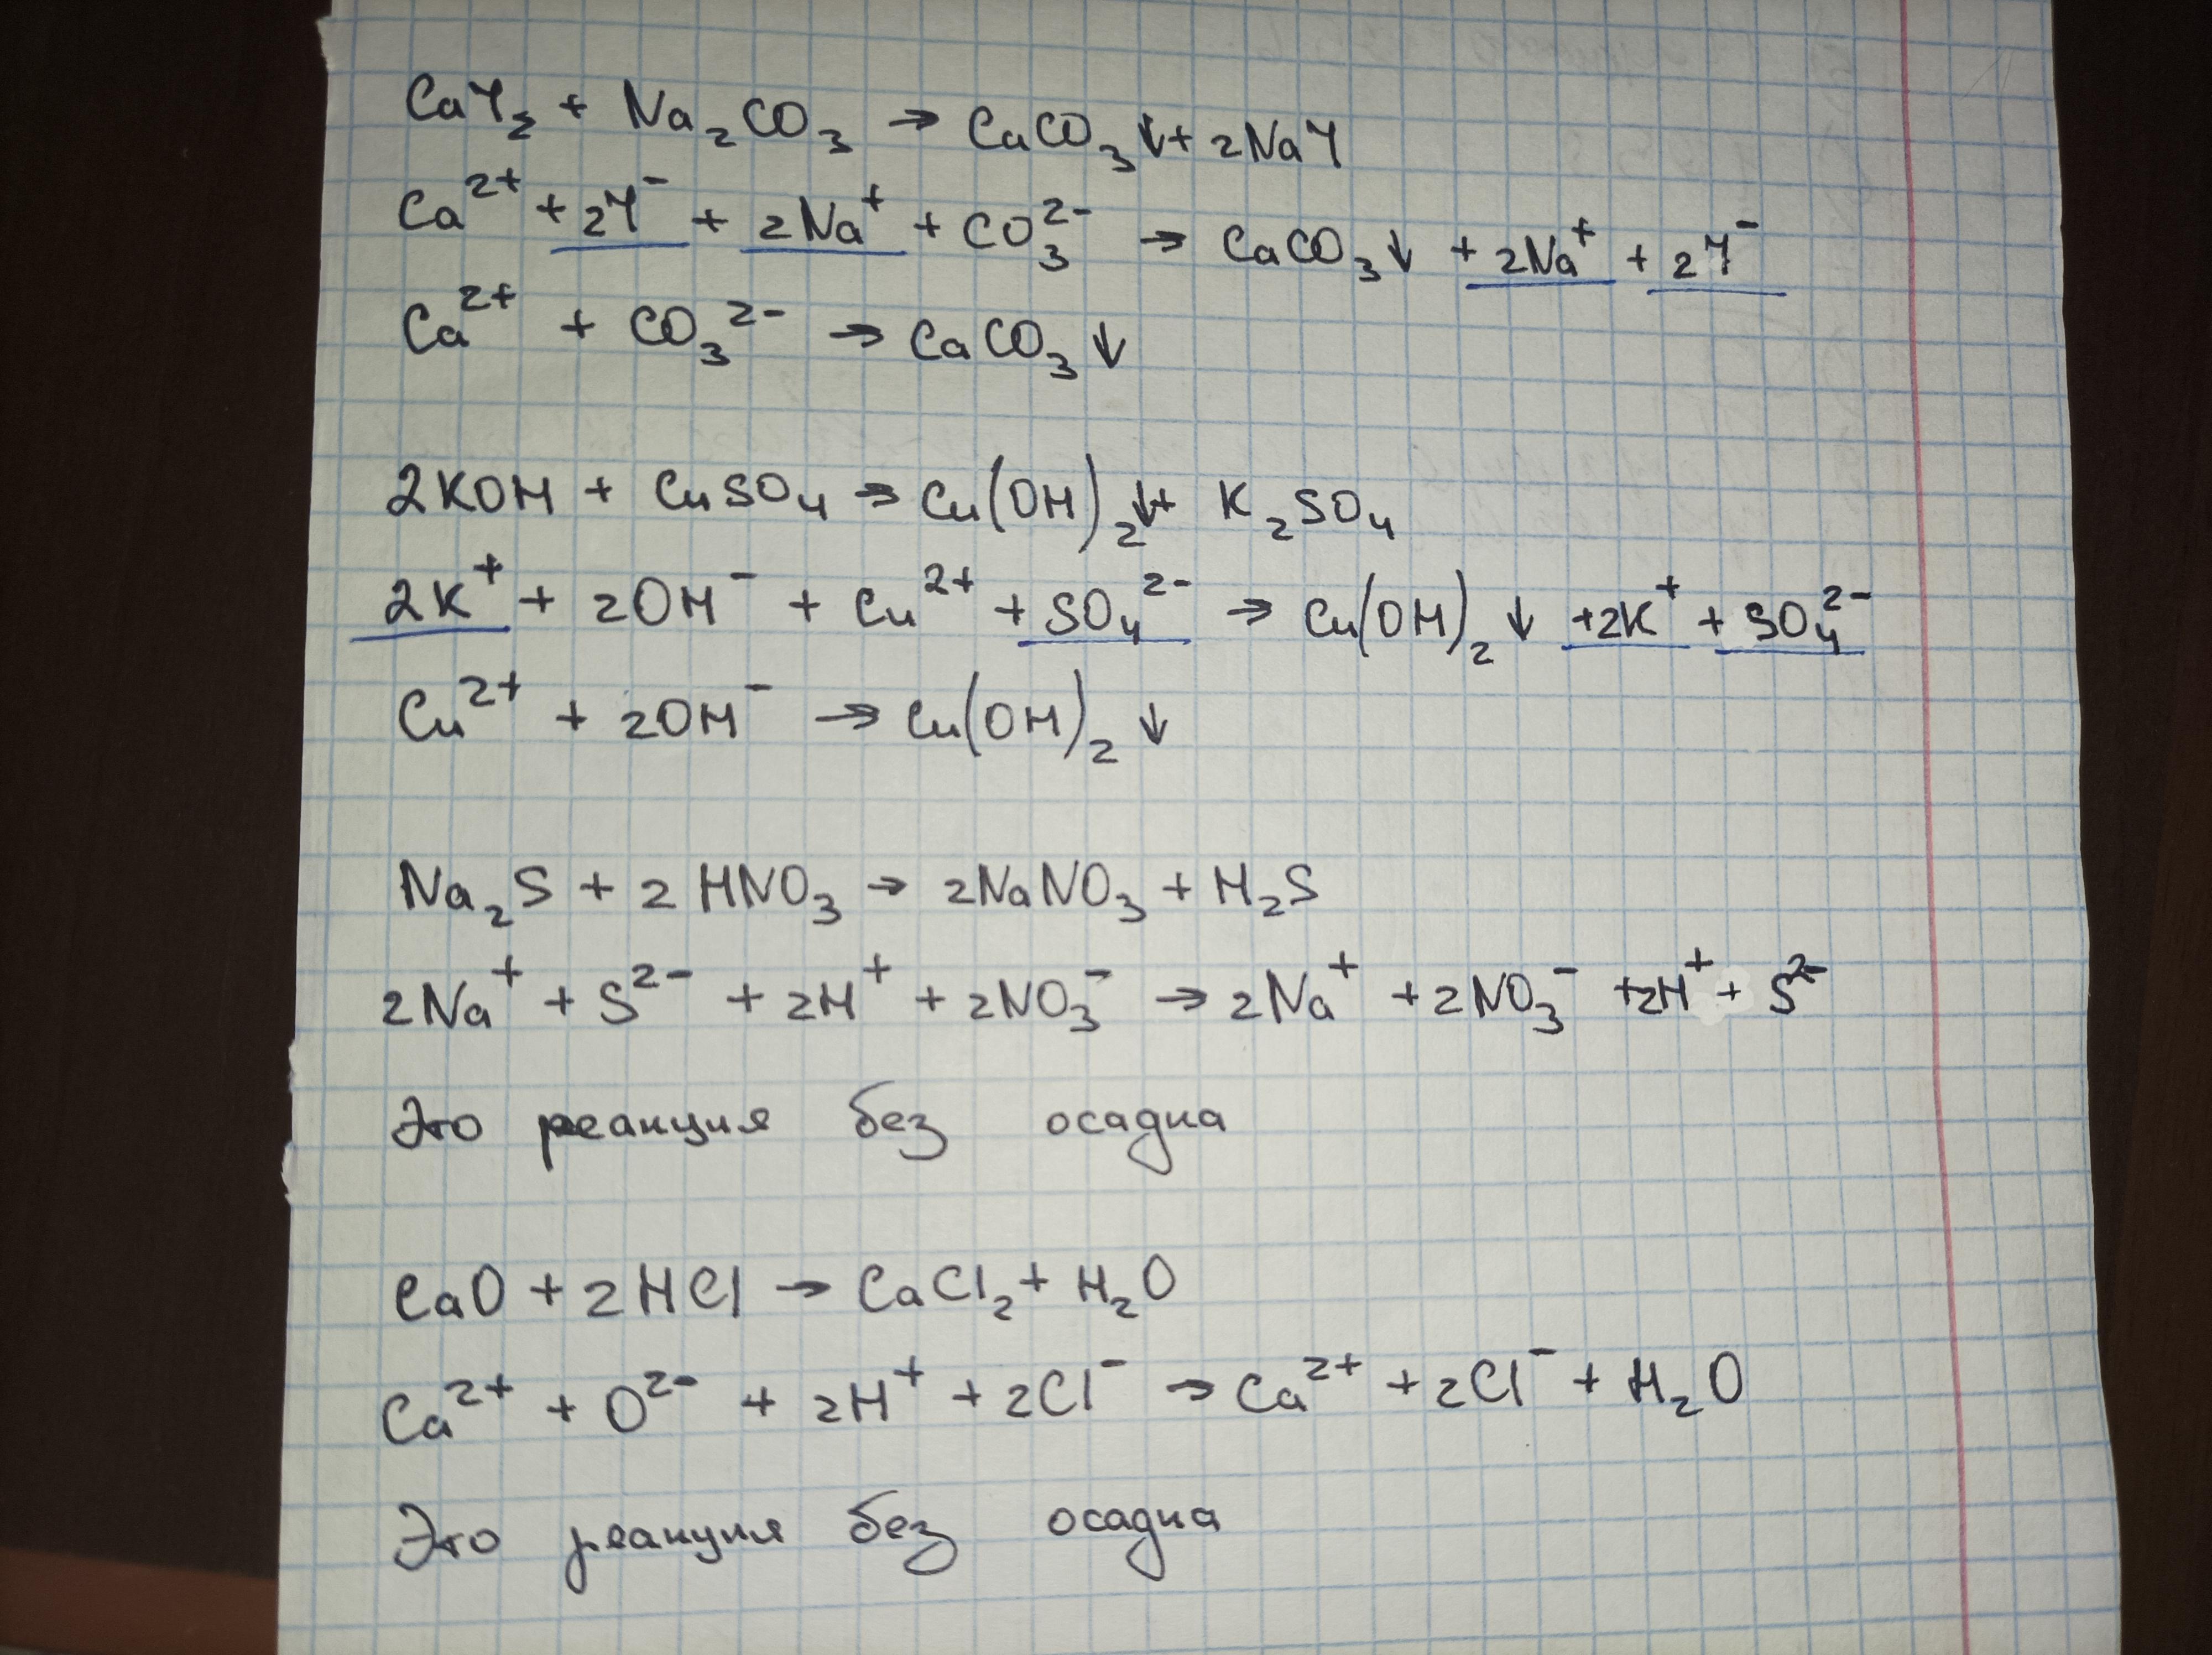 CaY₂ + Na₂CO₃ → CaCO₃↓ + 2NaY
Ca²⁺ + 2Y⁻ + 2Na⁺ + CO₃²⁻ → CaCO₃↓ + 2Na⁺ + 2Y⁻
Ca²⁺ + CO₃²⁻ → CaCO₃↓
2KOH + CuSO₄ → Cu(OH)₂↓ + K₂SO₄
2K⁺ + 2OH⁻ + Cu²⁺ + SO₄²⁻ → Cu(OH)₂↓ + 2K⁺ + SO₄²⁻
Cu²⁺ + 2OH⁻ → Cu(OH)₂↓
Na₂S + 2HNO₃ → 2NaNO₃ + H₂S
2Na⁺ + S²⁻ + 2H⁺ + 2NO₃⁻ → 2Na⁺ + 2NO₃⁻ + 2H⁺ + S²⁻
Это реакция без осадка
CaO + 2HCl → CaCl₂ + H₂O
Ca²⁺ + O²⁻ + 2H⁺ + 2Cl⁻ → Ca²⁺ + 2Cl⁻ + H₂O
Это реакция без осадка